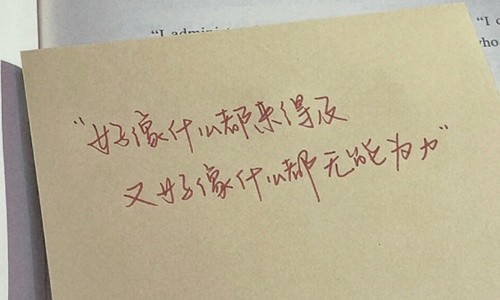 “I admini
“I c
who
“好像什么都来得及
又好像什么都无能为力”